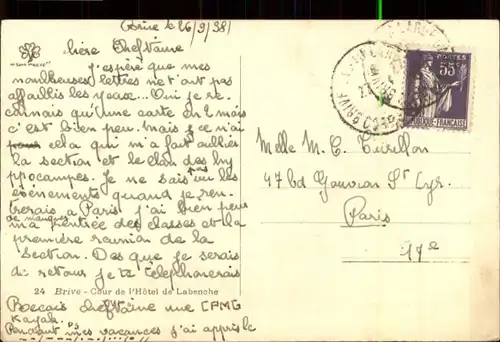 Brive le 26/9/38
Chère Cheftaine
J'espère que mes
nombreuses lettres ne t'ont pas
affaibli les yeux... Oui je re
connais qu'une carte en 2 mois
c'est bien peu. Mais ce n'ai
pas cela qui m'a fait oublier
la section et le clan des hy
ppocampes. Je ne sais pas vu les
évènements quand je ren
trerais à Paris j'ai bien peur
de manquer
ma rentrée des classes et la
première réunion de la
section. Dès que je serais
de retour je te téléphonerais
24 Brive - Cour de l'Hôtel de Labenche
Reçois cheftaine une CPMG
Kayak.
PS
Pendant mes vacances j'ai appris le
POSTES
55c
RÉPUBLIQUE FRANÇAISE
BRIVE
Melle M. C. Turellon
47 bd Gouvion St Cyr.
Paris
17e